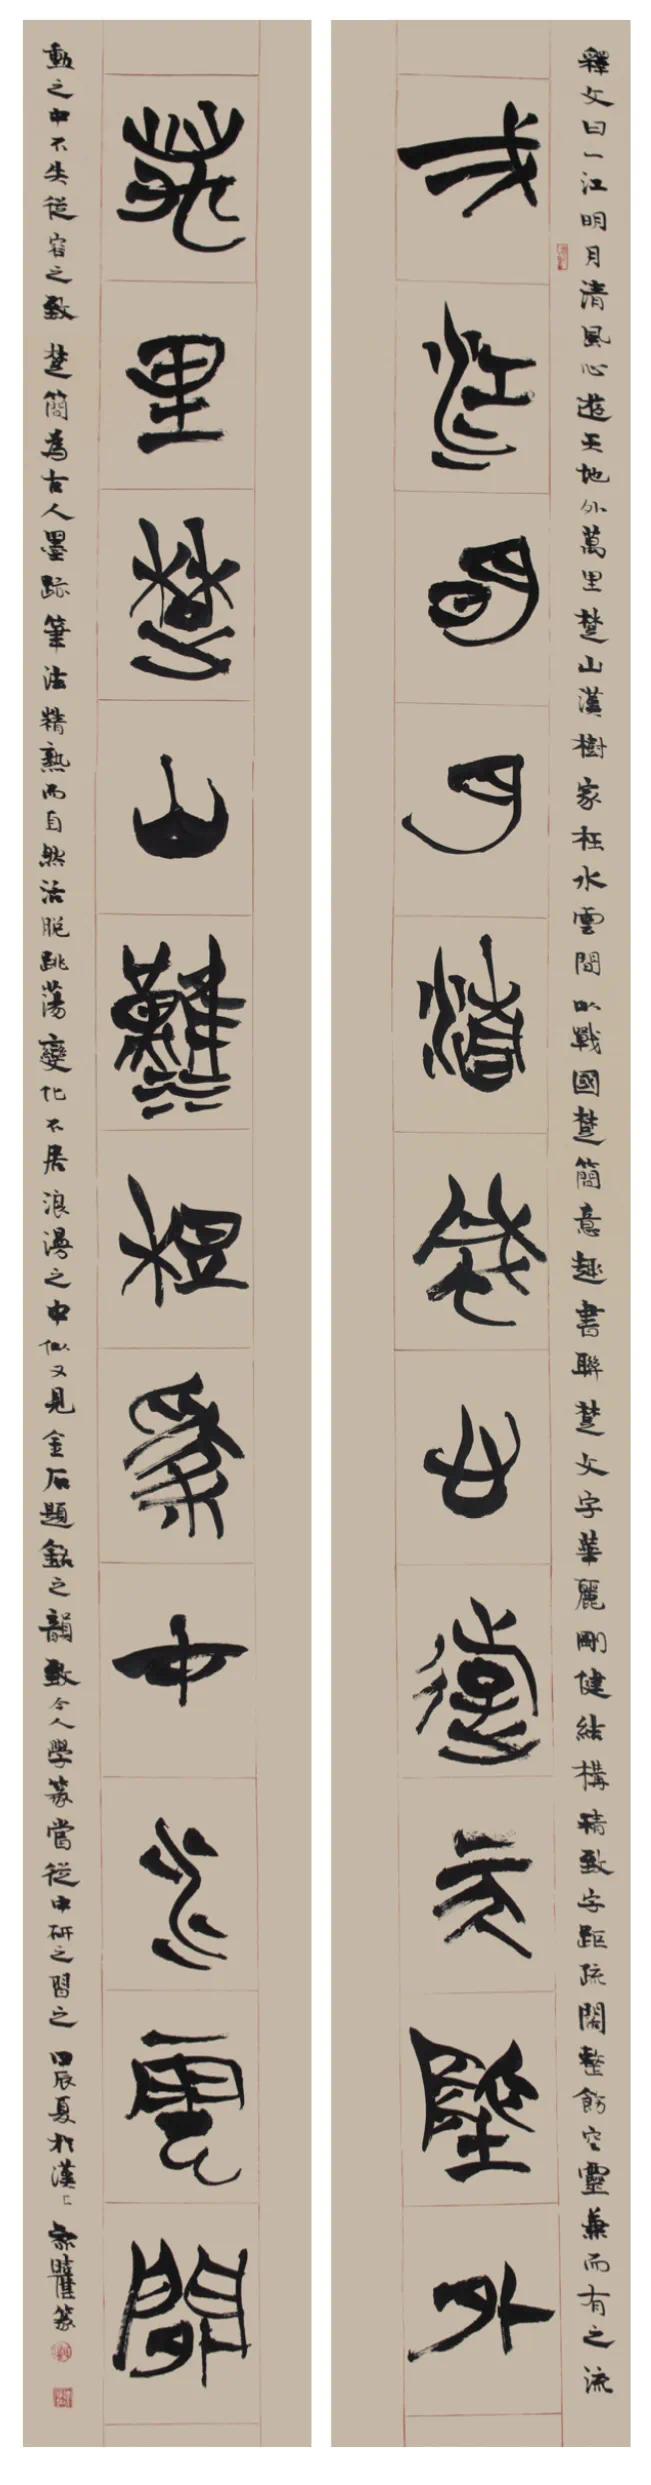 釋文曰一江明月清風心遊天地外萬里楚山漢樹家在水雲間以戰國楚簡意趣書聯楚文字華麗剛健結構精致字距疏闊整飭空靈兼而有之流
一江明月清風心遊天地外
萬里楚山漢樹家在水雲間
動之中不失從容之致楚簡為古人墨跡筆法精熟而自然活脫跳蕩變化不居浪漫之中似又見金石題銘之韻致今人學篆當從中研之習之甲辰夏於漢上